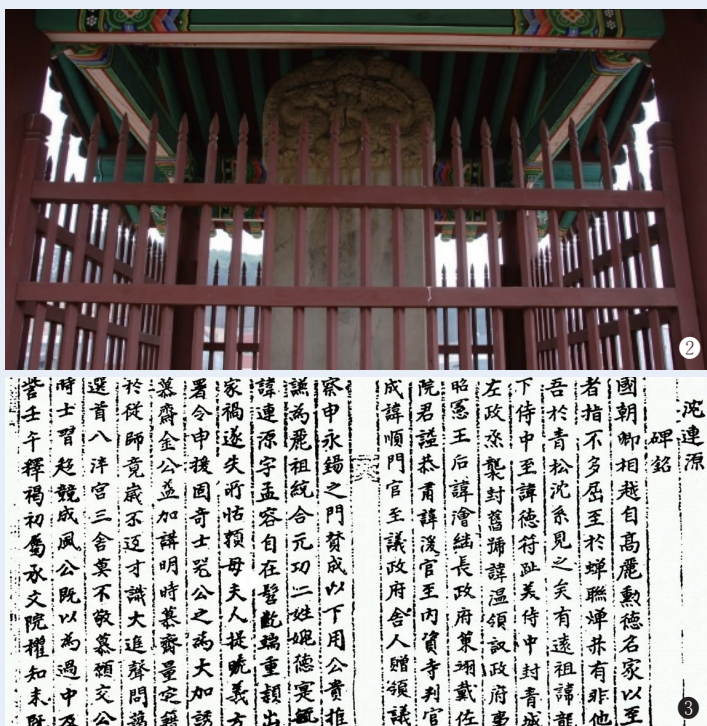 ②
沈連源
碑銘
國朝卿相越自高麗勲德名家以至
者指不多屈至於蟬聯燀赫有非他
吾於青松沈系見之矣有遠祖諱龍
下侍中至諱德符趾美侍中封青城
左政丞襲封舊號諱温領議政府事
昭憲王后諱澮繼長政府策翊戴佐
院君謚恭肅諱湲官至内資寺判官
成諱順門官至議政府舍人贈領議
察申永錫之門贊成以下用公貴推
謙為麗祖統合元功二姓媲德寔毓
諱連源字孟容自在髫齔端重頴出
家禍遂失所怙頼母夫人提曉義方
署令申援固奇士公之為大加誘
慕齋金公益加講明時慕齋量定籍
於従師竟歳不返才識大進聲問藹
選首入泮宮三舍莫不敬慕願交公
時士習趍競成風公既以為過中及
訾壬午釋褐初屬承文院權知未
❸